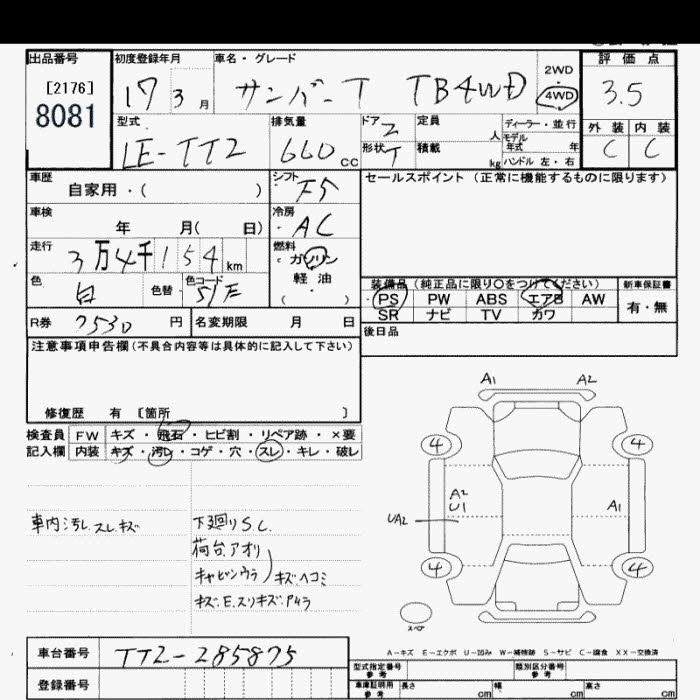 出品番号 初度登録年月 車名・グレード 評価点
[2176]
8081
17 3月 サンバーT TB4WD 2WD 4WD 3.5
型式 排気量 ドア 2 定員 人 ディーラー・並行 外装 内装
LE-TT2 660cc 形状 T 積載 kg モデル年式 年 ハンドル 左・右 C C
車歴 自家用・( ) シフト F5 セールスポイント (正常に機能するものに限ります)
車検 年 月( 日) 冷房 AC
走行 3万4千154km 燃料 ガソリン
軽油
( ・ )
色 白 色替 色コード 51E
装備品 (純正品に限り○をつけてください) 新車保証書
PS PW ABS エアB AW 有・無
SR ナビ TV カワ
R券 7530 円 名変期限 月 日 後日品
注意事項申告欄(不具合内容等は具体的に記入して下さい)
修復歴 有 〔箇所 〕
検査員 FW キズ・飛石・ヒビ割・リペア跡・×要
記入欄 内装 キズ・汚レ・コゲ・穴・スレ・キレ・破レ
車内汚レ.スレ.キズ
下廻りS.C.
荷台.アオリ
キャビンウラ) キズヘコミ
キズ.E.スリキズ.P4ラ
A1 A2
4 4
A2
U1
UA2
A1
4 4
スペア
A-キズ E-エクボ U-凹み W-補修跡 S-サビ C-腐食 XX-交換済
車台番号 TT2-285875
登録番号
型式指定番号 参考 類別区分番号 参考
車庫証明用 参考 長さ cm 幅 cm 高さ cm